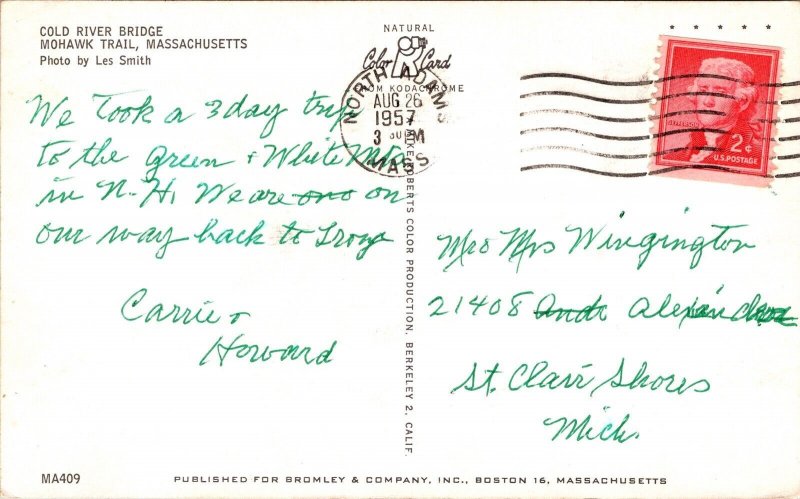 COLD RIVER BRIDGE
MOHAWK TRAIL, MASSACHUSETTS
Photo by Les Smith
NATURAL
Color Card
FROM KODACHROME
NORTH ADAMS
AUG 26
1957
3 30 PM
MASS
JEFFERSON
2¢
U.S. POSTAGE
We took a 3 day trip
to the Green + White Mts
in N-H, We are on
our way back to Troy
Carrie +
Howard
MIKE ROBERTS COLOR PRODUCTION, BERKELEY 2, CALIF.
Mr o Mrs Wingington
21408 Alexandra
St. Clair Shores
Mich.
MA409
PUBLISHED FOR BROMLEY & COMPANY, INC., BOSTON 16, MASSACHUSETTS